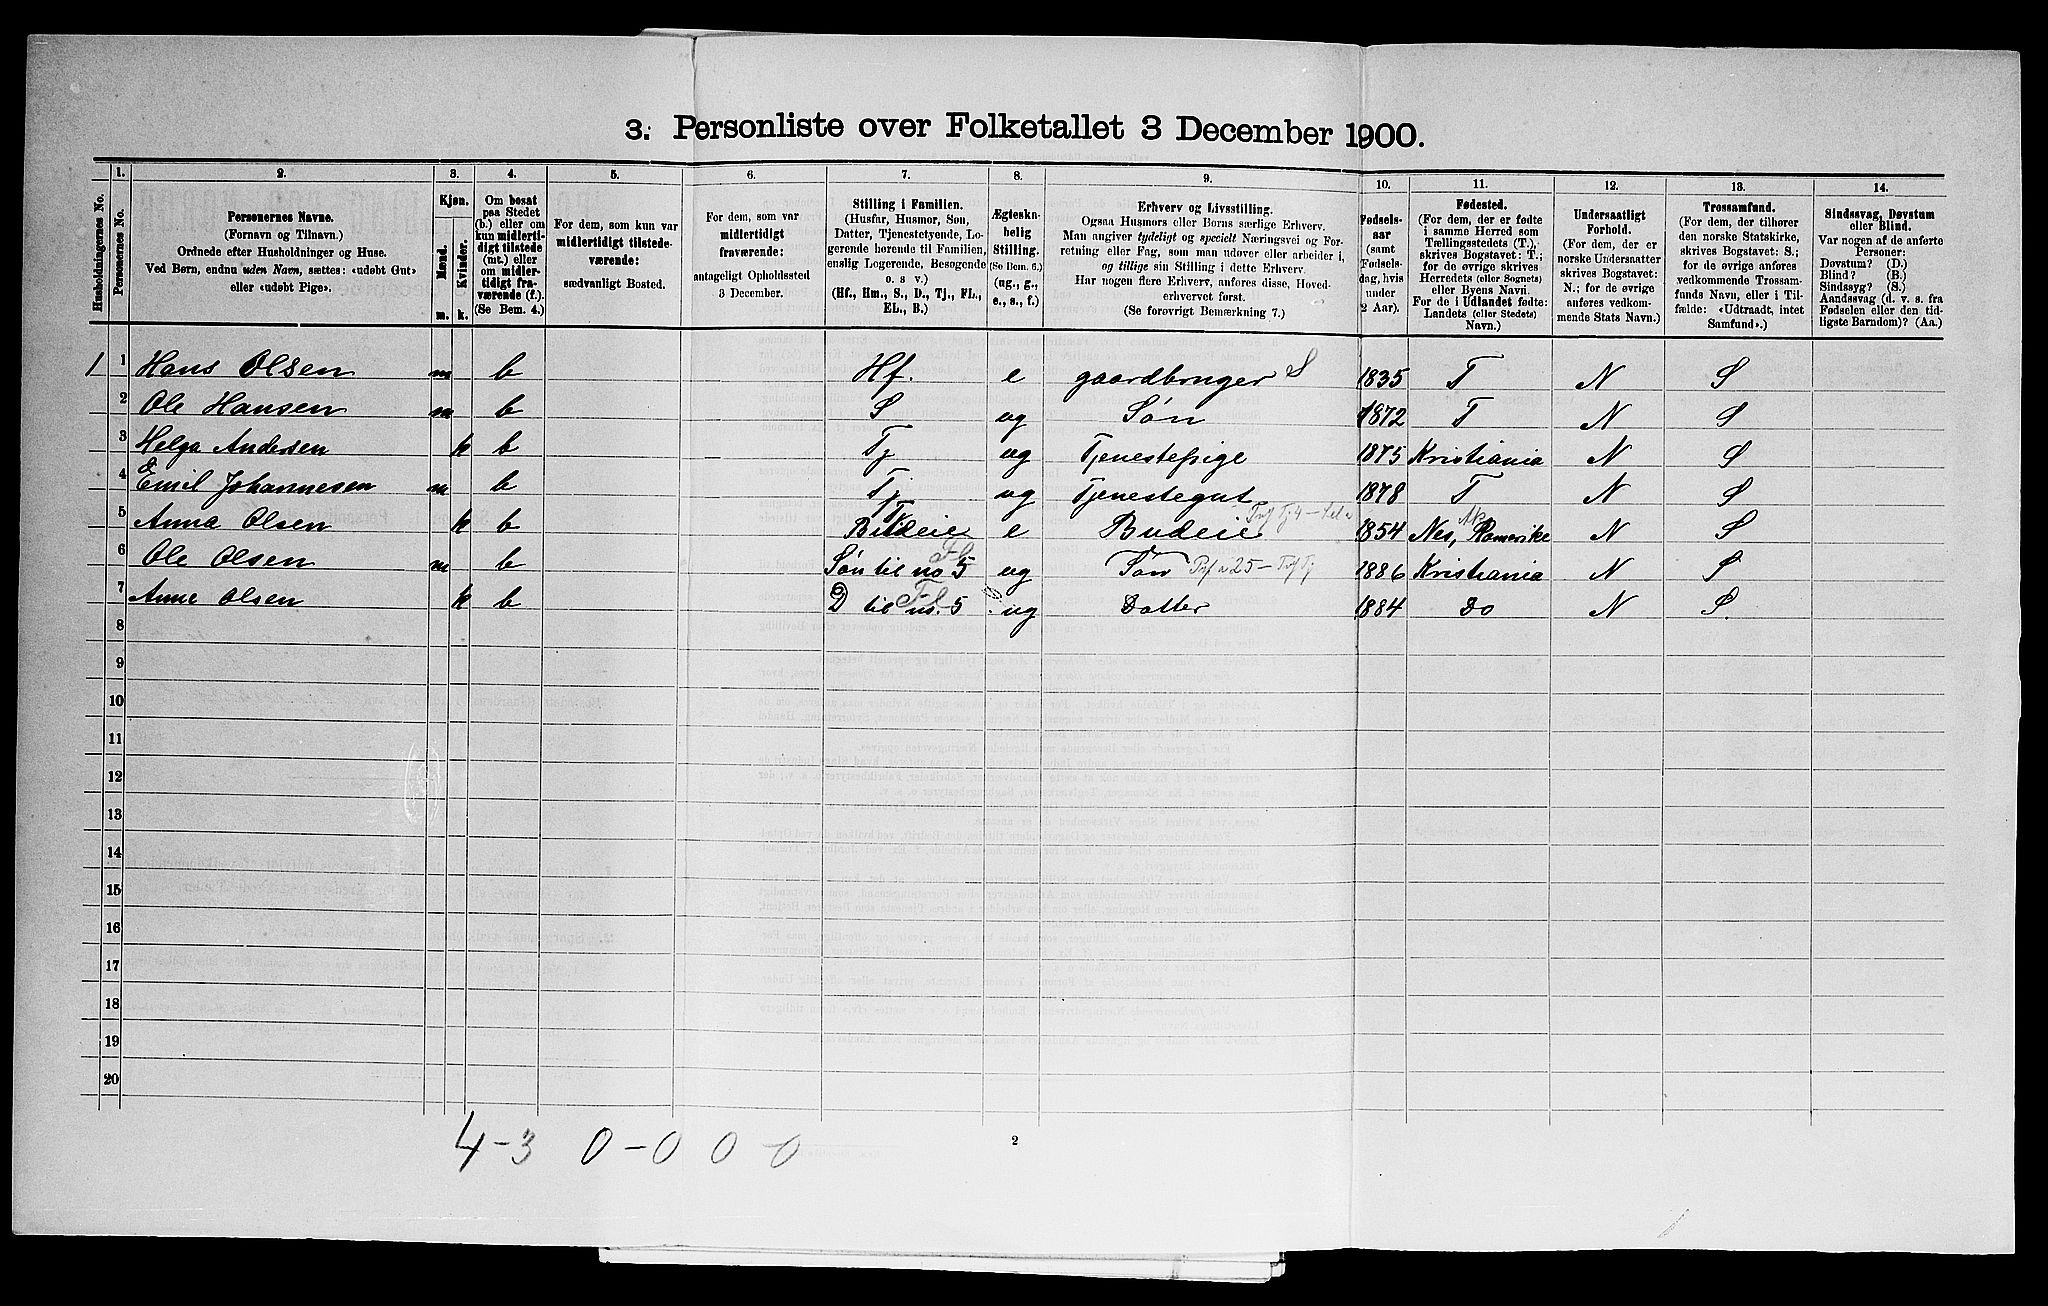 3. Personliste over Folketallet 3 December 1900.
Husholdningernes No.
1.
Personernes No.
2.
Personernes Navne.
(Fornavn og Tilnavn.)
Ordnede efter Husholdninger og Huse.
Ved Børn, endnu uden Navn, sættes: «udøbt Gut»
eller «udøbt Pige».
3.
Kjøn.
Mænd.
Kvinder.
m. k.
4.
Om bosat
paa Stedet
(b.) eller om
kun midlerti-
digt tilstede
(mt.) eller
om midler-
tidigt fra-
værende (f.).
(Se Bem. 4.)
5.
For dem, som kun var
midlertidigt tilstede-
værende:
sædvanligt Bosted.
6.
For dem, som var
midlertidigt
fraværende:
antageligt Opholdssted
3 December.
7.
Stilling i Familien.
(Husfar, Husmor, Søn,
Datter, Tjenestetyende, Lo-
gerende hørende til Familien,
enslig Logerende, Besøgende
o. s v.)
(Hf., Hm., S., D., Tj., FL.,
EL., B.)
8.
Ægteska-
belig
Stilling.
(Se Bem. 6.)
(ug., g.,
e., s., f.)
9.
Erhverv og Livsstilling.
Ogsaa Husmors eller Børns særlige Erhverv.
Man angiver tydeligt og specielt Næringsvei og For-
retning eller Fag, som man udøver eller arbeider i,
og tillige sin Stilling i dette Erhverv.
Har nogen flere Erhverv, anføres disse, Hoved-
erhvervet først.
(Se forøvrigt Bemærkning 7.)
10.
Fødsels-
aar
(samt
Fødsels-
dag, hvis
under
2 Aar).
11.
Fødested.
(For dem, der er fødte
i samme Herred som
Tællingsstedets (T.),
skrives Bogstavet: T.;
for de øvrige skrives
Herredets (eller Sognets)
eller Byens Navn.
For de i Udlandet fødte:
Landets (eller Stedets)
Navn.)
12.
Undersaatligt
Forhold.
(For dem, der er
norske Undersaatter
skrives Bogstavet:
N.; for de øvrige
anføres vedkom-
mende Stats Navn.)
13.
Trossamfund.
(For dem, der tilhører
den norske Statskirke,
skrives Bogstavet: S.;
for de øvrige anføres
vedkommende Trossam-
funds Navn, eller i Til-
fælde: «Udtraadt, intet
Samfund».)
14.
Sindssvag, Døvstum
eller Blind.
Var nogen af de anførte
Personer:
Døvstum? (D.)
Blind? (B.)
Sindssyg? (S.)
Aandssvag (d. v. s. fra
Fødselen eller den tid-
ligste Barndom)? (Aa.)
1 1 Hans Olsen m b Hf. e gaardbruger S 1835 T N S
2 Ole Hansen m b S ug Søn 1872 T N S
3 Helga Andersen k b Tj ug Tjenestepige 1875 Kristiania N S
4 Emil Johannesen m b Tj ug Tjenestegut 1878 T N S
5 Anna Olsen k b Budeie Tj e Budeie 1854 Nes, Romerike Ak N S
6 Ole Olsen m b Søn til no 5 FL ug Søn 1886 Kristiania N S
7 Anne Olsen k b D til no. 5 FL ug Datter 1884 Do N S.
8
9
10
11
12
13
14
15
16
17
18
19
20
4-3 0-0 0-0
2